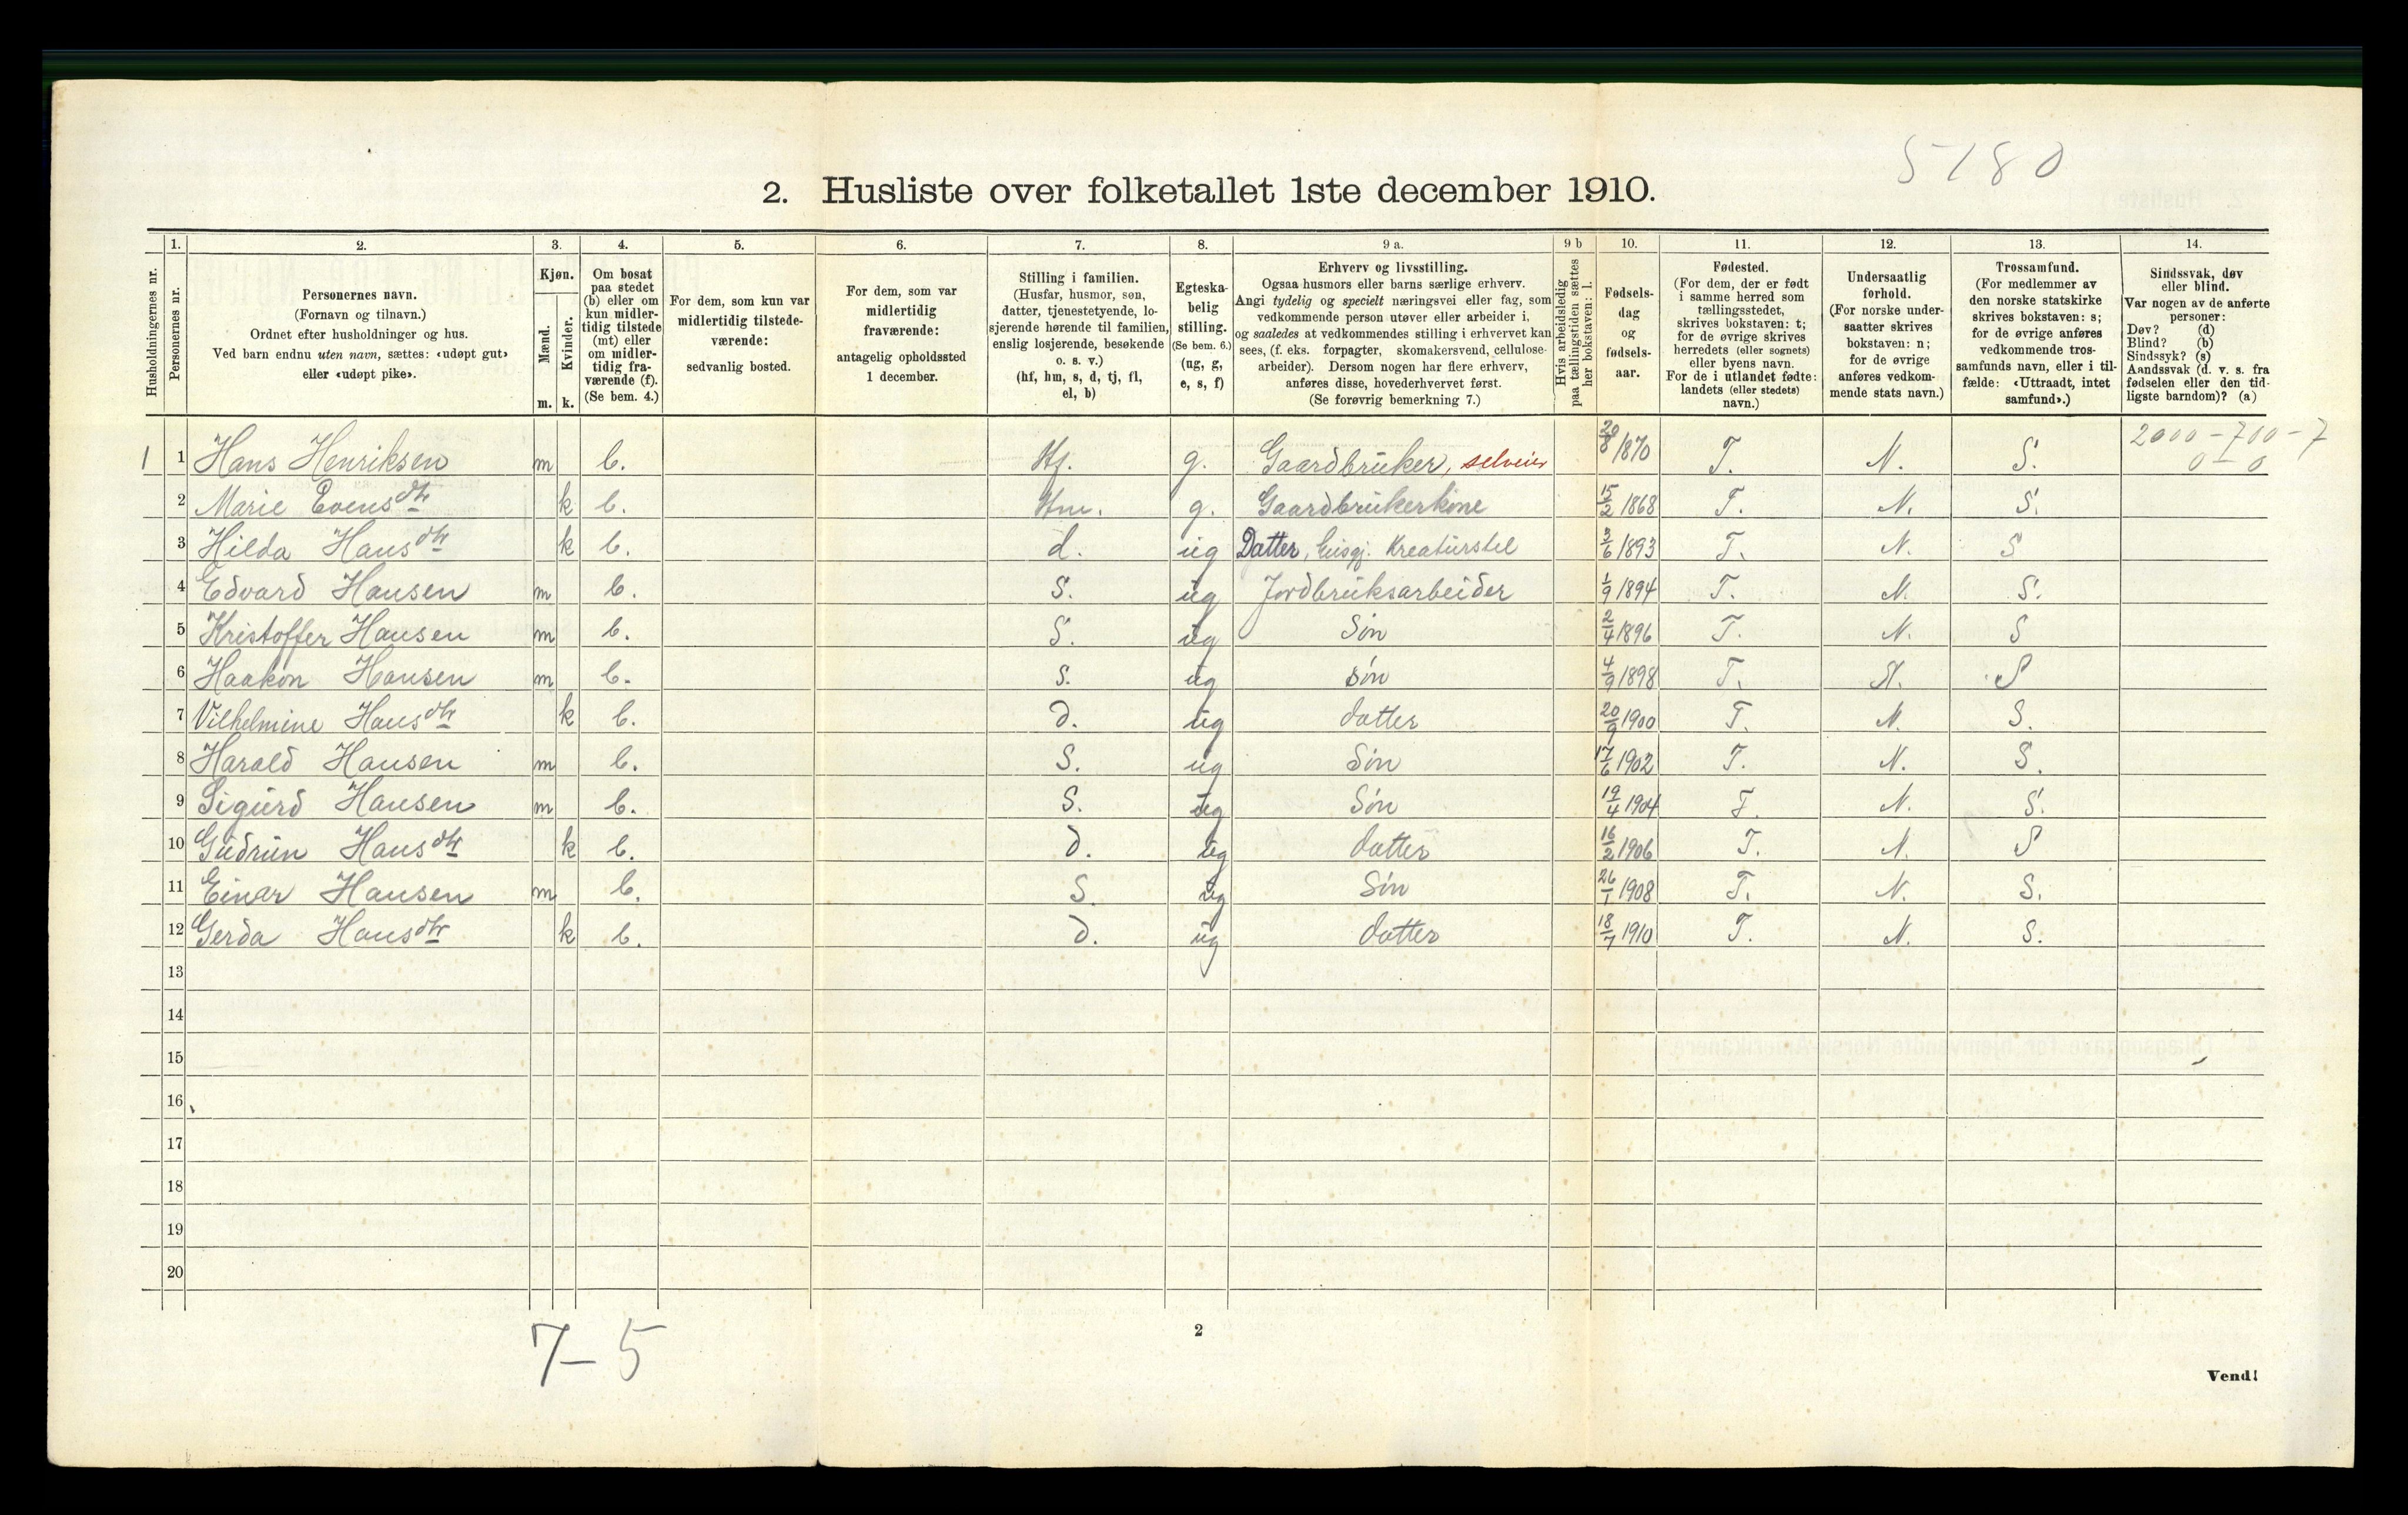 5180
2. Husliste over folketallet 1ste december 1910.
Husholdningernes nr.
1. Personernes nr.
2. Personernes navn.
(Fornavn og tilnavn.)
Ordnet efter husholdninger og hus.
Ved barn endnu uten navn, sættes: «udøpt gut»
eller «udøpt pike».
3. Kjøn.
Mænd. m.
Kvinder. k.
4. Om bosat
paa stedet
(b) eller om
kun midler-
tidig tilstede
(mt) eller
om midler-
tidig fra-
værende (f).
(Se bem. 4.)
5. For dem, som kun var
midlertidig tilstede-
værende:
sedvanlig bosted.
6. For dem, som var
midlertidig
fraværende:
antagelig opholdssted
1 december.
7. Stilling i familien.
(Husfar, husmor, søn,
datter, tjenestetyende, lo-
sjerende hørende til familien,
enslig losjerende, besøkende
o. s. v.)
(hf, hm, s, d, tj, fl,
el, b)
8. Egteska-
belig
stilling.
(Se bem. 6.)
(ug, g,
e, s, f)
9 a. Erhverv og livsstilling.
Ogsaa husmors eller barns særlige erhverv.
Angi tydelig og specielt næringsvei eller fag, som
vedkommende person utøver eller arbeider i,
og saaledes at vedkommendes stilling i erhvervet kan
sees, (f. eks. forpagter, skomakersvend, cellulose-
arbeider). Dersom nogen har flere erhverv,
anføres disse, hovederhvervet først.
(Se forøvrig bemerkning 7.)
9 b Hvis arbeidsledig
paa tællingstiden sættes
her bokstaven: l.
10. Fødsels-
dag
og
fødsels-
aar.
11. Fødested.
(For dem, der er født
i samme herred som
tællingsstedet,
skrives bokstaven: t;
for de øvrige skrives
herredets (eller sognets)
eller byens navn.
For de i utlandet fødte:
landets (eller stedets)
navn.)
12. Undersaatlig
forhold.
(For norske under-
saatter skrives
bokstaven: n;
for de øvrige
anføres vedkom-
mende stats navn.)
13. Trossamfund.
(For medlemmer av
den norske statskirke
skrives bokstaven: s;
for de øvrige anføres
vedkommende tros-
samfunds navn, eller i til-
fælde: «Uttraadt, intet
samfund».)
14. Sindssvak, døv
eller blind.
Var nogen av de anførte
personer:
Døv? (d)
Blind? (b)
Sindssyk? (s)
Aandssvak (d. v. s. fra
fødselen eller den tid-
ligste barndom)? (a)
2000 - 700 - 7
0 - 0
1 1 Hans Henriksen m b. Hf. g. Gaardbruker, selveier 20/8 1870 T. N. S.
2 Marie Evensdtr k b. Hm. g. Gaardbrukerkone 15/2 1868 T. N. S.
3 Hilda Hansdtr k b. d. ug Datter, husgj. Kreaturstel 3/6 1893 T. N. S
4 Edvard Hansen m b. S. ug Jordbruksarbeider 1/9 1894 T. N. S.
5 Kristoffer Hansen m b. S. ug Søn 2/4 1896 T. N. S
6 Haakon Hansen m b. S. ug søn 4/9 1898 T. N. S
7 Vilhelmine Hansdtr k b. d. ug datter 20/9 1900 T. N. S.
8 Harald Hansen m b. S. ug Søn 17/6 1902 T. N. S.
9 Sigurd Hansen m b. S. ug Søn 19/4 1904 T. N. S.
10 Gudrun Hansdtr k b. d. ug datter 16/2 1906 T. N. S
11 Einar Hansen m b. S ug Søn 26/1 1908 T. N. S.
12 Gerda Hansdtr k b. d. ug datter 18/7 1910 T. N. S.
13
14
15
16
17
18
19
20
7-5
2
Vend!